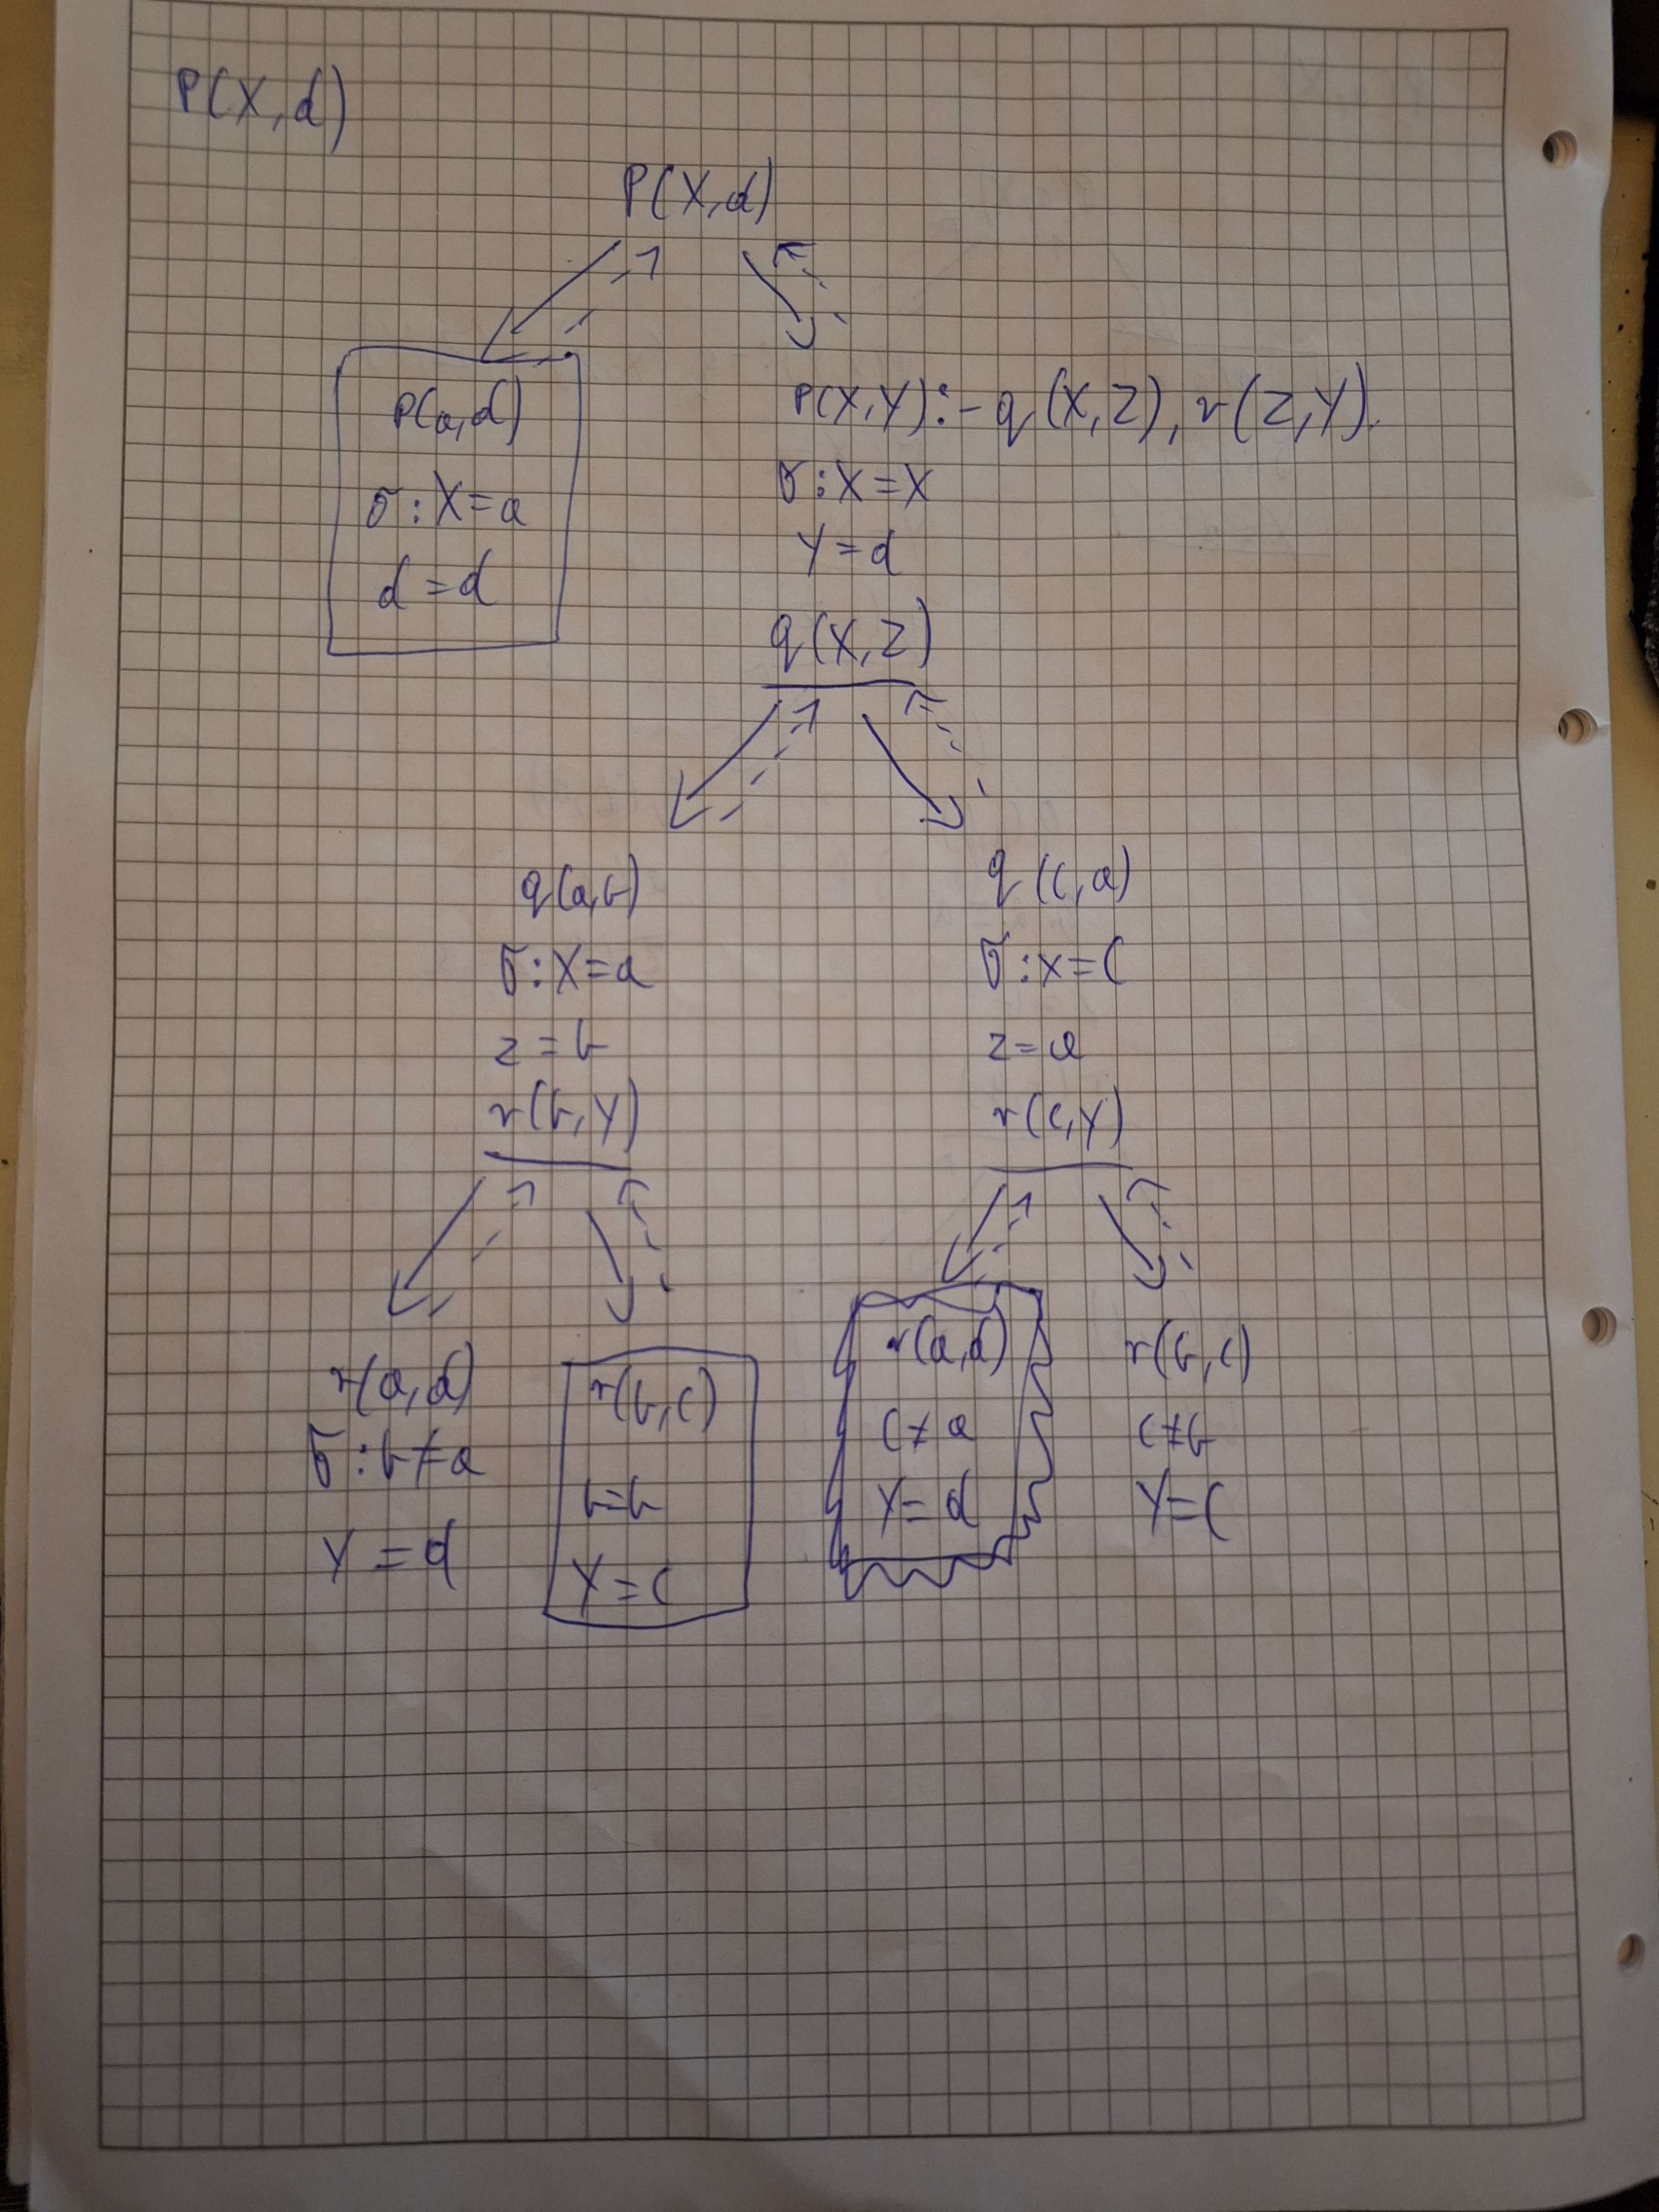 P(X,d)
P(X,d)
P(a,d)
σ:X=a
d=d
P(X,Y):-q(X,Z),r(Z,Y).
σ:X=X
Y=d
q(X,Z)
q(a,b)
σ:X=a
Z=b
r(b,Y)
q(c,a)
σ:X=c
Z=a
r(c,Y)
r(a,d)
σ:b≠a
Y=d
r(b,c)
b=b
Y=c
r(a,d)
c≠a
Y=d
r(b,c)
c≠b
Y=c